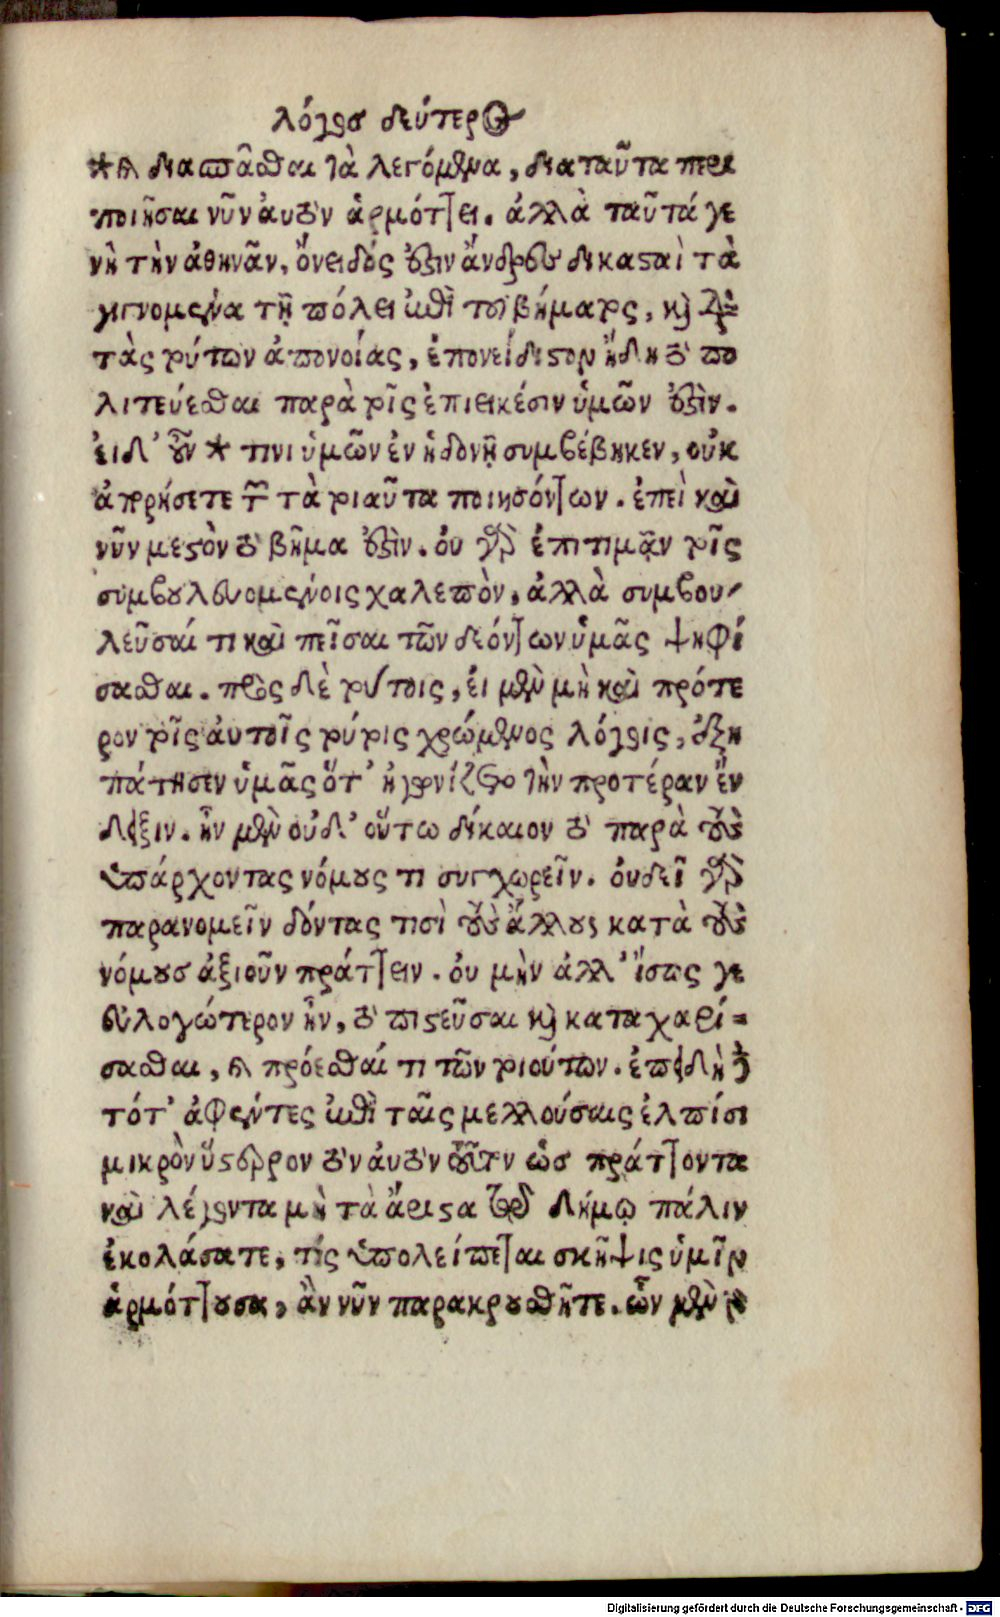 λόγος δεύτερος
*ἢ διασπᾶσθαι τὰ λεγόμενα, διαταῦτα περι
ποιῆσαι νῦν ἀυτὸν ἁρμόττει. ἀλλὰ ταῦτά γε
νὴ τὴν ἀθηνᾶν, ὄνειδός ἐστιν ἄνδρες δικασταὶ τὰ
γιγνομενα τῇ πόλει ἐπὶ τοῦ βήματος, καὶ διὰ
τὰς τούτων ἀπονοίας, ἐπονείδιστον ἤδη τὸ πο
λιτεύεσθαι παρὰ τοῖς ἐπιεικέσιν ὑμῶν ἐστὶν.
ἐι δ' οὖν * τινι ὑμῶν ἐν ἡδονῇ συμβέβηκεν, οὐκ
ἀπορήσετε τῶν τὰ τοιαῦτα ποιησόντων. ἐπεὶ καὶ
νῦν μεστὸν τὸ βῆμα ἐστὶν. ὀυ γὰρ ἐπιτιμᾷν τοῖς
συμβουλευομένοις χαλεπὸν, ἀλλὰ συμβου-
λεῦσαί τι καὶ πεῖσαι τῶν δεόντων ὑμᾶς ψηφί
σασθαι. πρὸς δὲ τούτοις, ἐι μὲν μὴ καὶ πρότε
ρον τοῖς ἀυτοῖς τούτοις χρώμενος λόγοις, ἐξη
πάτησεν ὑμᾶς ὅτ' ἠγωνίζετο τὴν προτέραν ἔν
δειξιν. ἦν μὲν οὐδ' οὕτω δίκαιον τὸ παρὰ τοὺς
ὑπάρχοντας νόμους τι συγχωρεῖν. ὀυδεῖ γὰρ
παρανομεῖν δόντας τισὶ τοὺς ἄλλους κατὰ τοὺς
νόμους ἀξιοῦν πράττειν. ὀυ μὴν ἀλλ' ἴσως γε
ἐυλογώτερον ἦν, τὸ πιστεῦσαι καὶ καταχαρί-
σασθαι, ἢ πρόεσθαί τι τῶν τοιούτων. ἐπειδὴ δὲ
τότ' ἀφέντες ἐπὶ ταῖς μελλούσαις ἐλπίσι
μικρὸν ὕστερον τὸν ἀυτὸν τοῦτον ὡς πράττοντα
καὶ λέγοντα μὴ τὰ ἄριστα τῷ δήμῳ πάλιν
ἐκολάσατε, τίς ὑπολείπεται σκῆψις ὑμῖν
ἁρμόττουσα, ἂν νῦν παρακρουσθῆτε. ὧν μὲν γὰρ
Digitalisierung gefördert durch die Deutsche Forschungsgemeinschaft - DFG